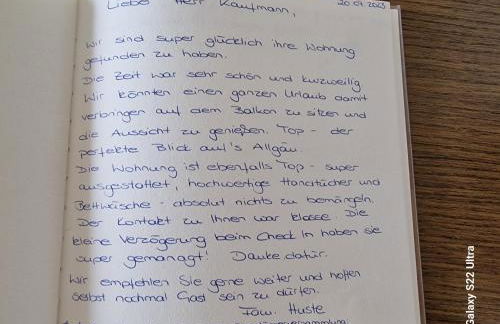 Liebe Herr Kaufmann,
20.07.2023
Wir sind super glücklich ihre Wohnung
gefunden zu haben.
Die Zeit war sehr schön und kurzweilig
Wir könnten einen ganzen Urlaub damit
verbringen auf dem Balkon zu sitzen und
die Aussicht zu genießen. Top - der
perfekte Blick auf's Allgäu.
Die Wohnung ist ebenfalls Top - super
ausgestattet, hochwertige Handtücher und
Bettwäsche - absolut nichts zu bemängeln.
Der Kontakt zu Ihnen war klasse. Die
kleine Verzögerung beim Check In haben sie
super gemanagt! Danke dafür.
Wir empfehlen Sie gerne weiter und hoffen
selbst nochmal Gast sein zu dürfen.
Fam. Huste
Galaxy S22 Ultra